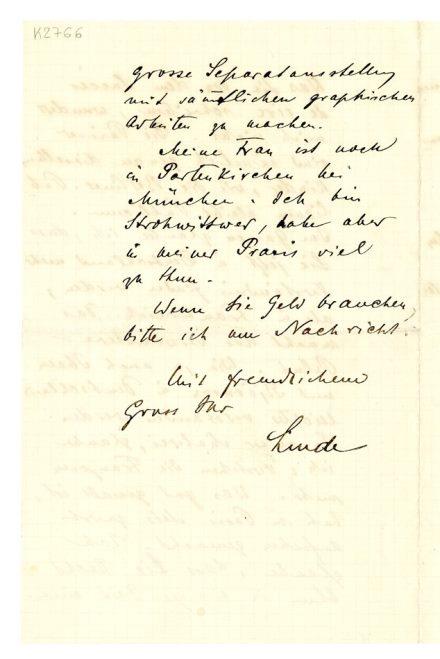 K2766
grosse Separatausstellung
mit sämtlichen graphischen
Arbeiten zu machen.
Meine Frau ist noch
in Partenkirchen bei
München. Ich bin
Strohwittwer, habe aber
in meiner Praxis viel
zu thun.
Wenn Sie Geld brauchen,
bitte ich um Nachricht.
Mit freundlichem
Gruss Ihr
Linde